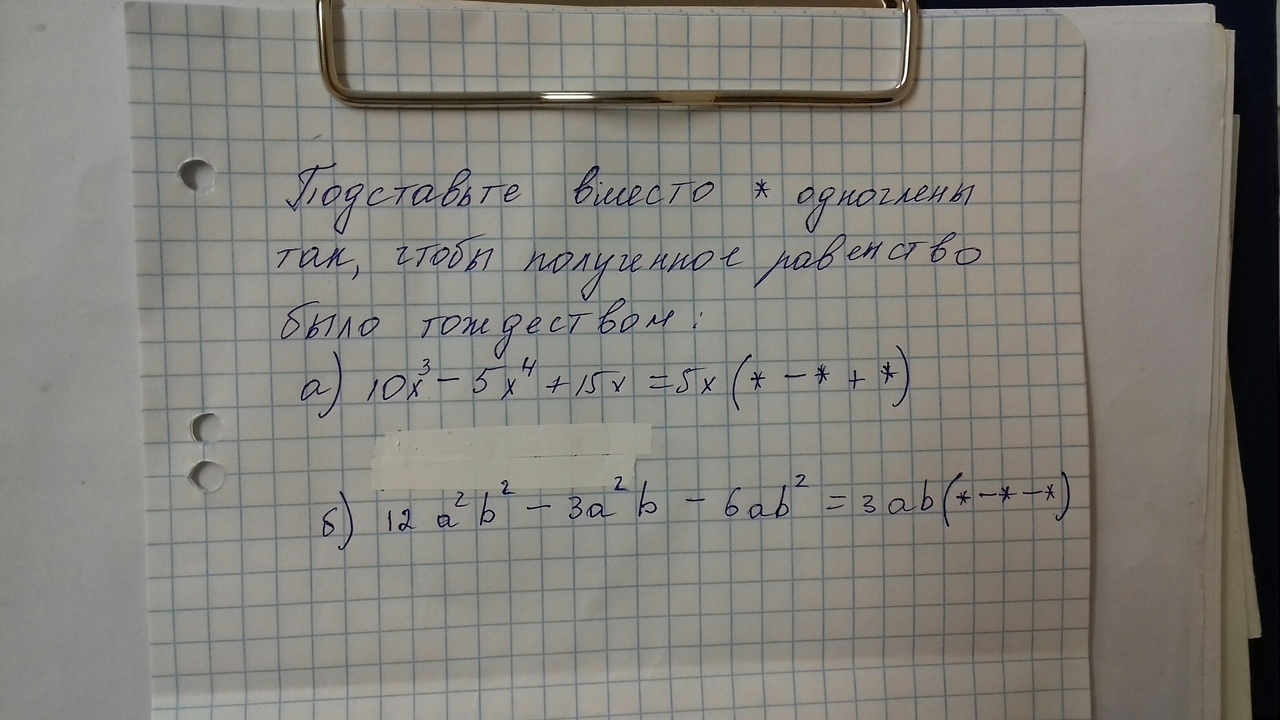 Подставьте вместо * одночлены
так, чтобы полученное равенство
было тождеством:
а) 10x³ - 5x⁴ + 15x = 5x (* - * + *)
б) 12 a² b² - 3a² b - 6ab² = 3ab(* - * - *)